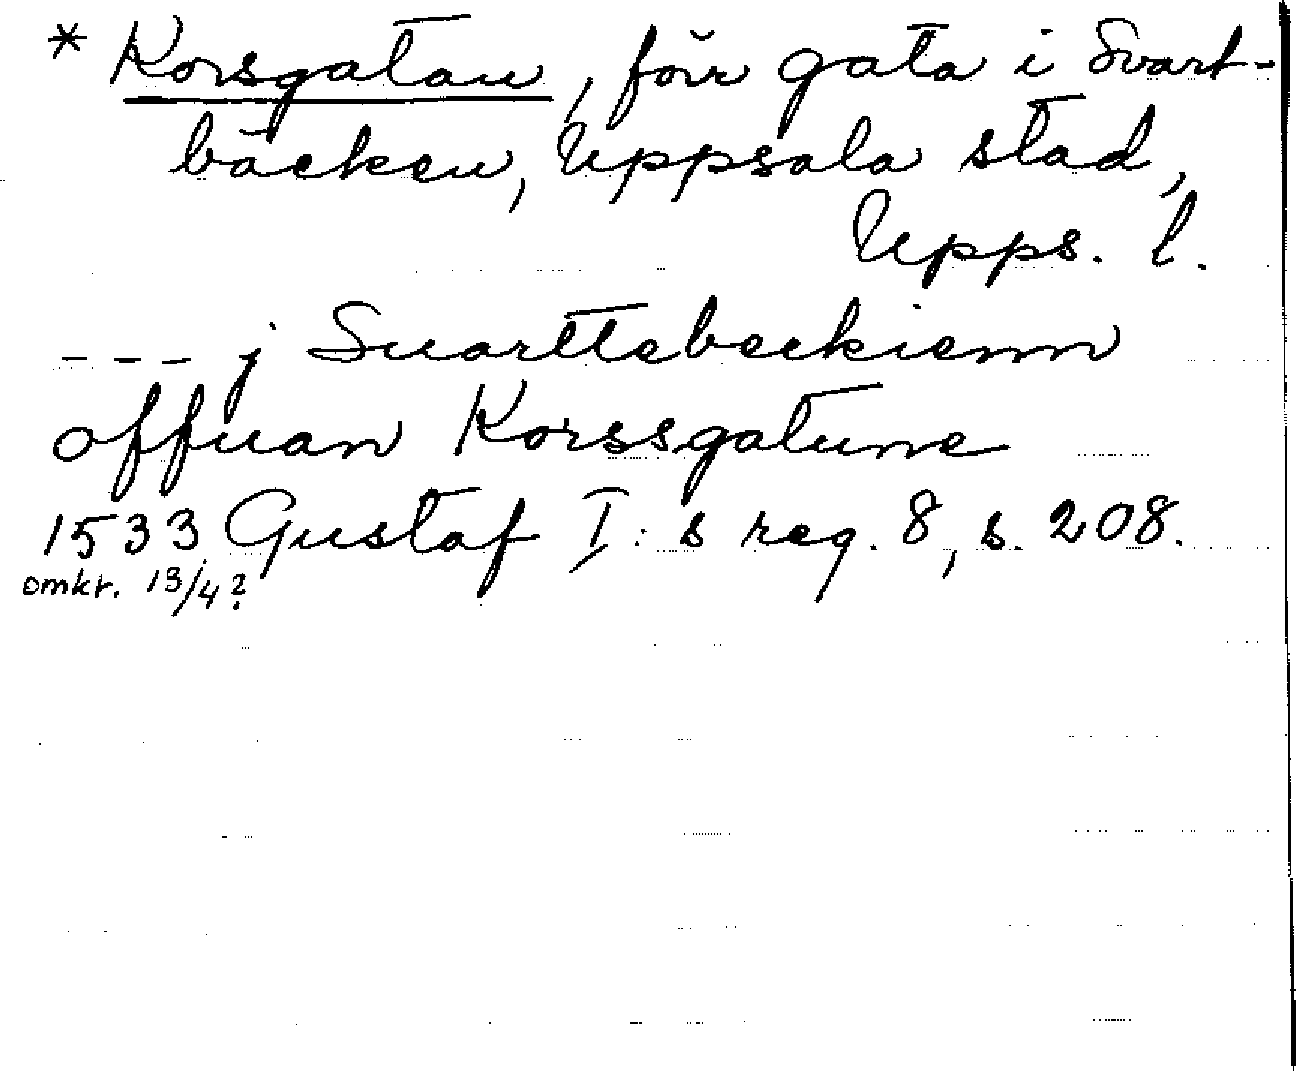 * Korsgatan, förr gata i Svart-
bäcken, Uppsala stad,
Upps. l.
--- j Suarttebeckienn
offuan Korssgatune
1533 Gustaf I:s reg. 8, s. 208.
omkr. 13/4?